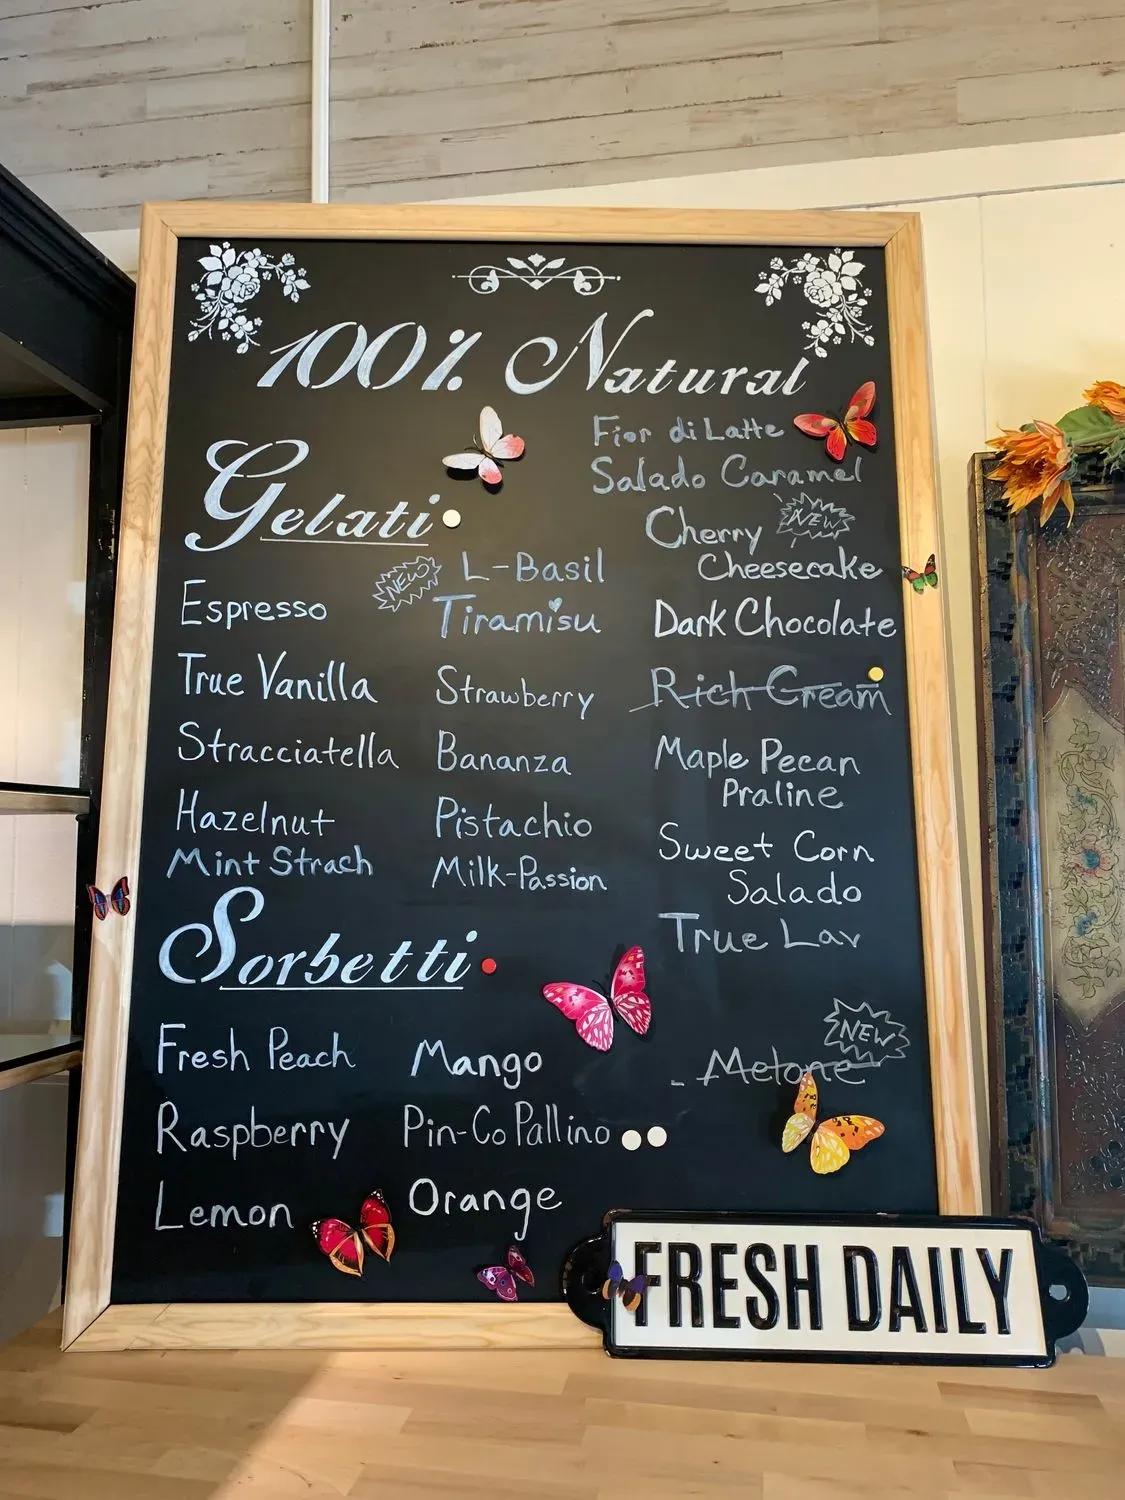 100% Natural
Gelati
Espresso
True Vanilla
Stracciatella
Hazelnut
Mint Strach
NEW
L-Basil
Tiramisu
Strawberry
Bananza
Pistachio
Milk-Passion
Fior di Latte
Salado Caramel
Cherry NEW
Cheesecake
Dark Chocolate
Rich Cream
Maple Pecan
Praline
Sweet Corn
Salado
True Lav
Sorbetti
Fresh Peach
Raspberry
Lemon
Mango
Pin-Co Pallino
Orange
NEW
Melone
FRESH DAILY